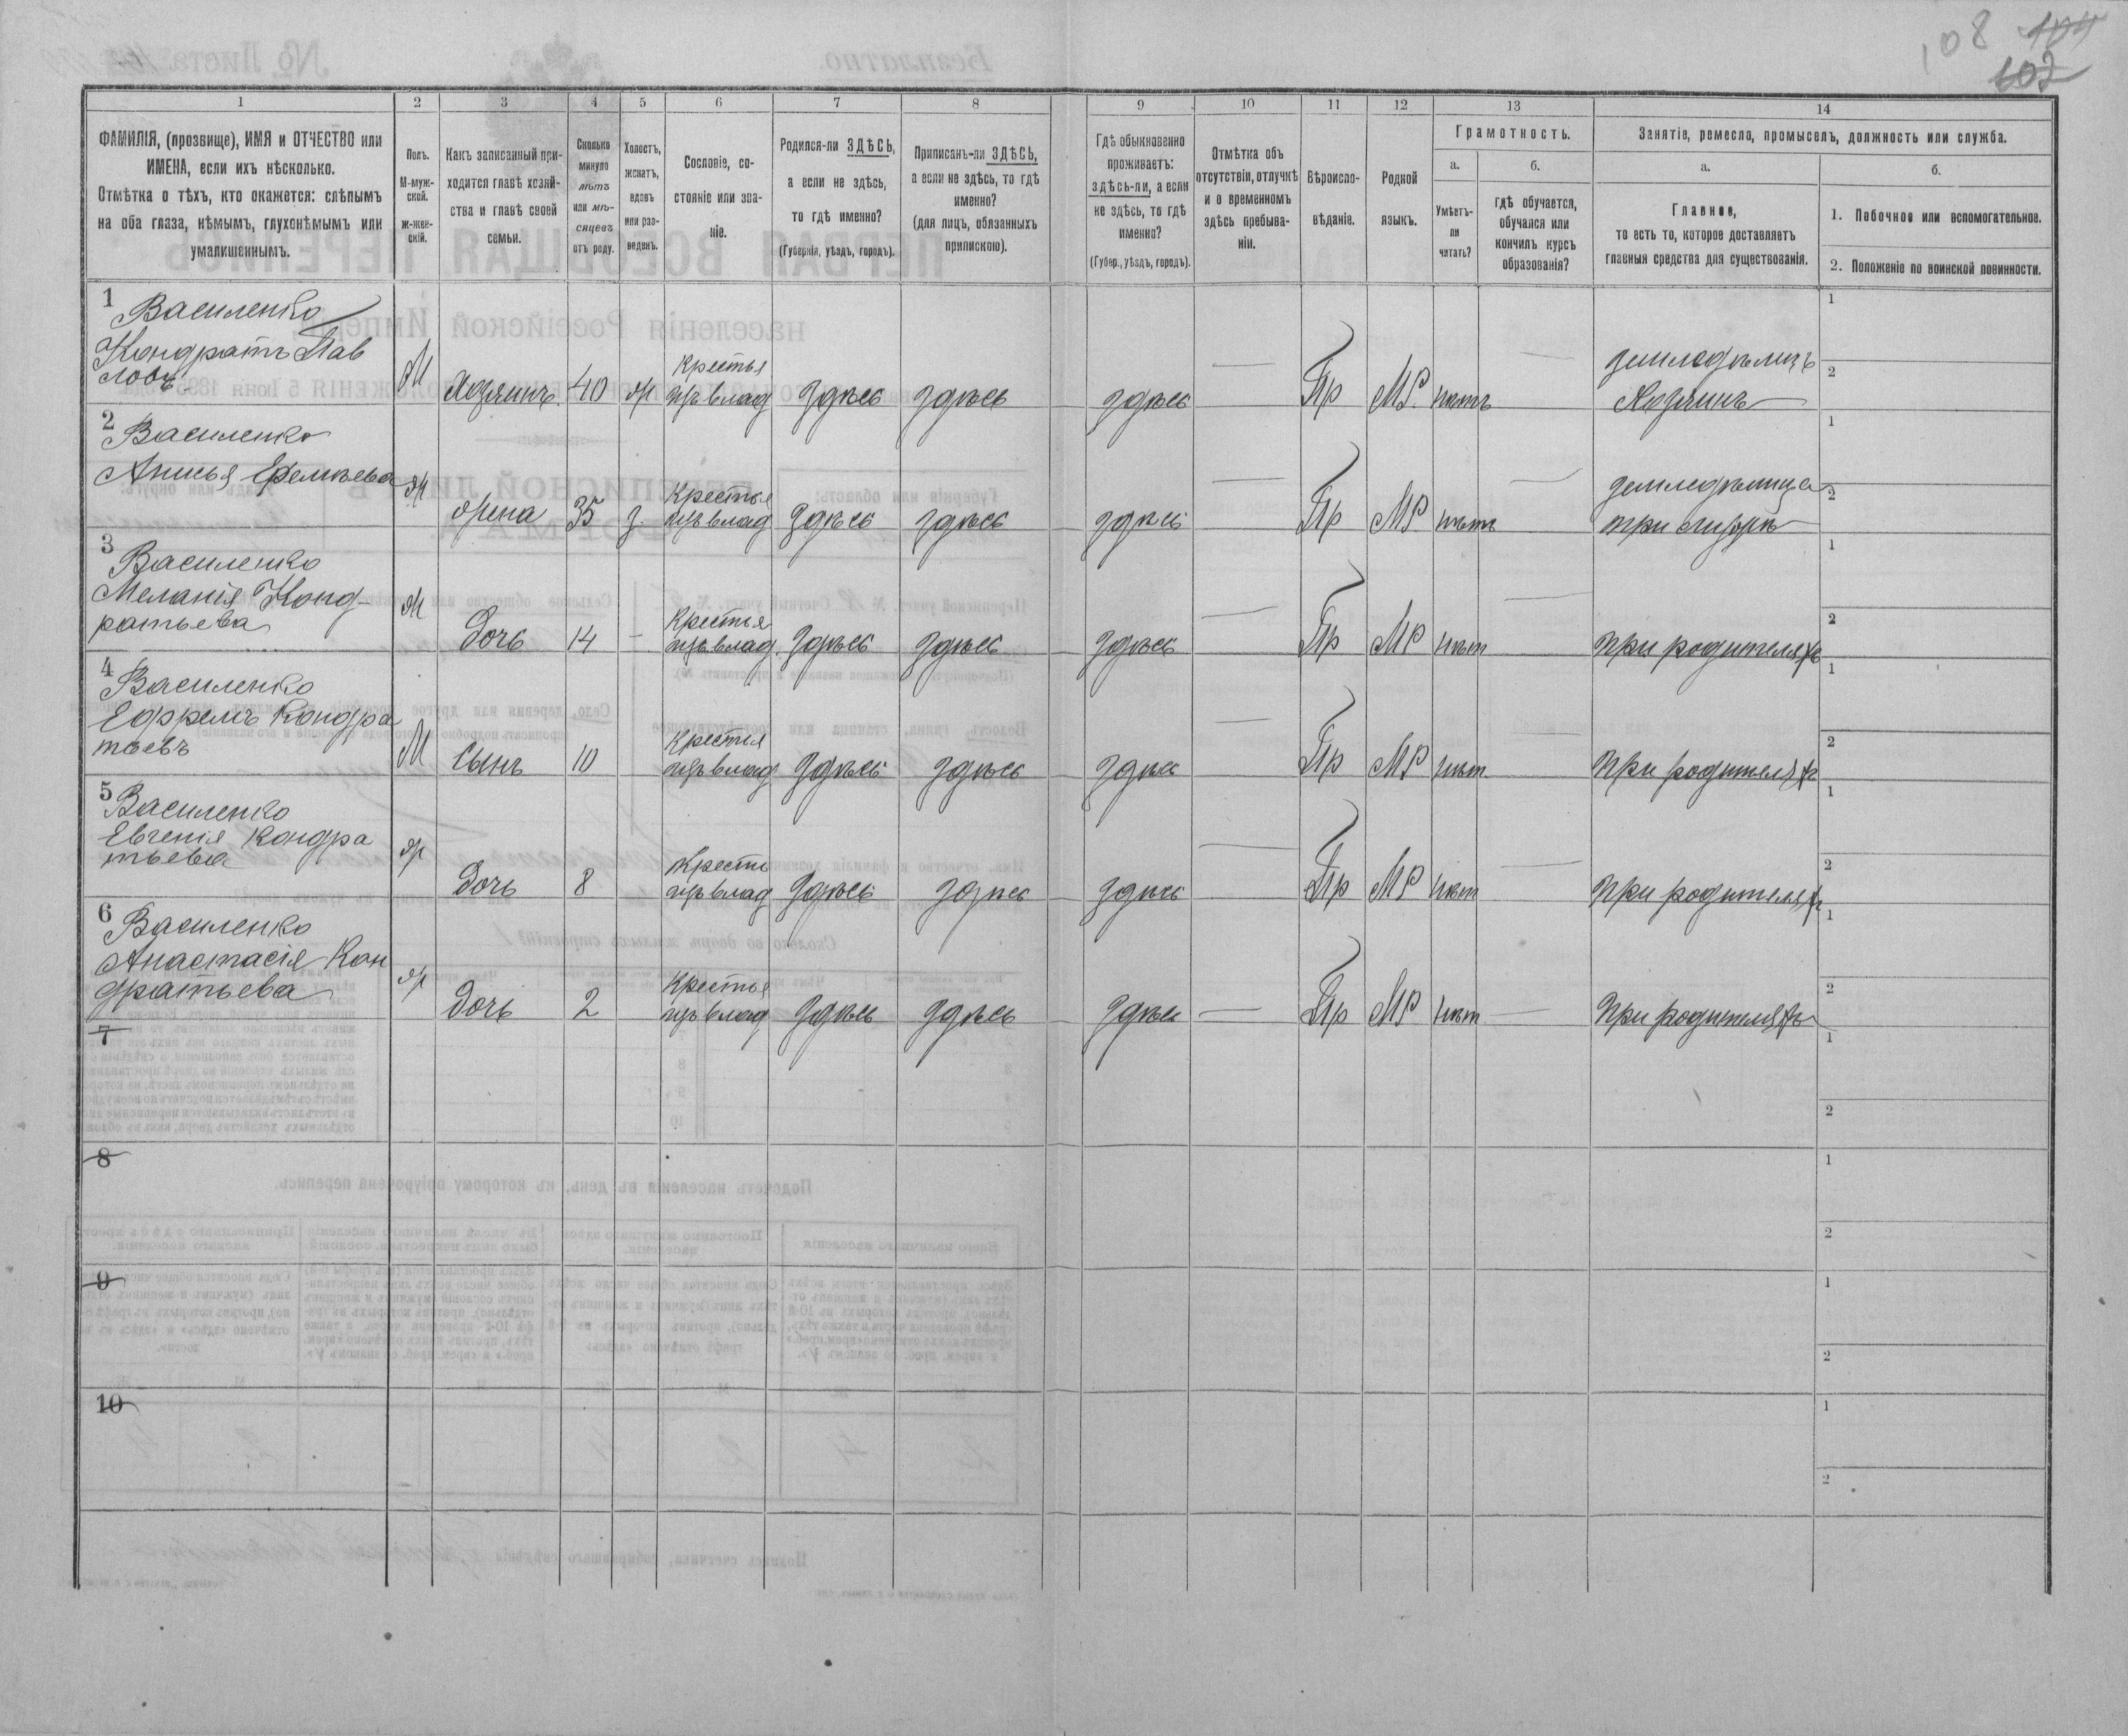 108 104
102
1 2 3 4 5 6 7 8 9 10 11 12 13 14
ФАМИЛІЯ, (прозвище), ИМЯ и ОТЧЕСТВО или
ИМЕНА, если ихъ нѣсколько.
Отмѣтка о тѣхъ, кто окажется: слѣпымъ
на оба глаза, нѣмымъ, глухонѣмымъ или
умалишеннымъ.
Полъ.
М-муж-
ской.
ж-жен-
скій.
Какъ записанный при-
ходится главѣ хозяй-
ства и главѣ своей
семьи.
Сколько
минуло
лѣтъ
или мѣ-
сяцевъ
отъ роду.
Холостъ,
женатъ,
вдовъ
или раз-
веденъ.
Сословіе, со-
стояніе или зва-
ніе.
Родился-ли ЗДѢСЬ,
а если не здѣсь,
то гдѣ именно?
(Губернія, уѣздъ, городъ).
Приписанъ-ли ЗДѢСЬ,
а если не здѣсь, то гдѣ
именно?
(для лицъ, обязанныхъ
припискою).
Гдѣ обыкновенно
проживаетъ:
здѣсь-ли, а если
не здѣсь, то гдѣ
именно?
(Губер., уѣздъ, городъ).
Отмѣтка объ
отсутствіи, отлучкѣ
и о временномъ
здѣсь пребыва-
ніи.
Вѣроиспо-
вѣданіе.
Родной
языкъ.
Грамотность.
а.
Умѣетъ-
ли
читать?
б.
гдѣ обучается,
обучался или
кончилъ курсъ
образованія?
Занятіе, ремесло, промыселъ, должность или служба.
а.
Главное,
то есть то, которое доставляетъ
главныя средства для существованія.
б.
1. Побочное или вспомогательное.
2. Положеніе по воинской повинности.
1 Василенко
Кондратъ Пав
ловъ
М Хозяинъ 40 ж Крестья
нзъ влад здѣсь здѣсь здѣсь — Пр МР. нѣтъ — земледѣлецъ
Хозяинъ
1
2
2 Василенко
Анисья Ефремьева
ж жена 35 з. Крестья
нзъ влад здѣсь здѣсь здѣсь — Пр МР нѣтъ — земледѣлица
при мужѣ
1
2
3 Василенко
Меланія Конд-
ратьева
ж Дочь 14 — Крестья
нзъ влад. здѣсь здѣсь здѣсь — Пр МР нѣт — при родителяхъ
1
2
4 Василенко
Ефремъ Кондра
тьевъ
М Сынъ 10 Крестья
нзъ влад здѣсь здѣсь здѣсь — Пр МР нѣт — При родителяхъ
1
2
5 Василенко
Евгенія Кондра
тьева
ж Дочь 8 Кресть
нзъ влад здѣсь здѣсь здѣсь — Пр МР нѣт — при родителяхъ
1
2
6 Василенко
Анастасія Кон
дратьева
ж Дочь 2 Крестья
нзъ влад здѣсь здѣсь здѣсь — Пр МР нѣт — При родителяхъ
1
2
7
1
2
8
1
2
9
1
2
10
1
2